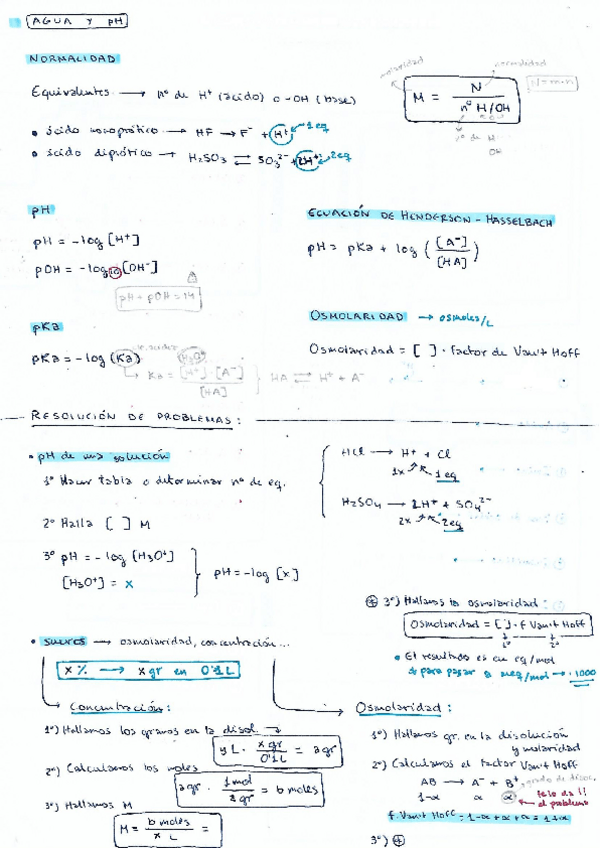 AGUA Y pH
NORMALIDAD
Equivalentes → nº de H+ (ácido) o -OH (base)
• ácido monoprótico → HF → F- + H+ 1eq
• ácido diprótico → H2SO3 ⇄ SO3 2- + 2H+ 2eq
molaridad
normalidad
M = N / nº H/OH
nº de H
OH
pH
pH = -log [H+]
pOH = -log10 [OH-]
pH + pOH = 14
ECUACIÓN DE HENDERSON-HASSELBACH
pH = pKa + log ([A-] / [HA])
pKa
pKa = -log (Ka)
Ka = [H+]·[A-] / [HA] } HA ⇄ H+ + A-
OSMOLARIDAD → osmoles/L
Osmolaridad = [ ] · factor de Van't Hoff
RESOLUCIÓN DE PROBLEMAS:
• pH de una solución
1º Hacer tabla o determinar nº de eq.
2º Halla [ ] M
3º pH = -log [H3O+]
[H3O+] = x
pH = -log [x]
HCl → H+ + Cl
1x 1eq
H2SO4 → 2H+ + SO4 2-
2x 2eq
• sueros → osmolaridad, concentración...
x% → x gr en 0'1 L
Concentración:
1º) Hallamos los gramos en la disol.
y L · x gr / 0'1 L = a gr
2º) Calculamos los moles
a gr · 1 mol / z gr = b moles
3º) Hallamos M
M = b moles / x L =
⊕ 3º) Hallamos la osmolaridad:
Osmolaridad = [ ] · f Van't Hoff
1º 2º
• El resultado es en eq/mol
para pasar a meq/mol → ·1000
Osmolaridad:
1º) Hallamos gr. en la disolución
y molaridad
2º) Calculamos el factor Van't Hoff
AB → A- + B+
grado de disoc.
1-α α α
te lo da
el problema
f. Van't Hoff = 1-α+α+α = 1+α
3º) ⊕